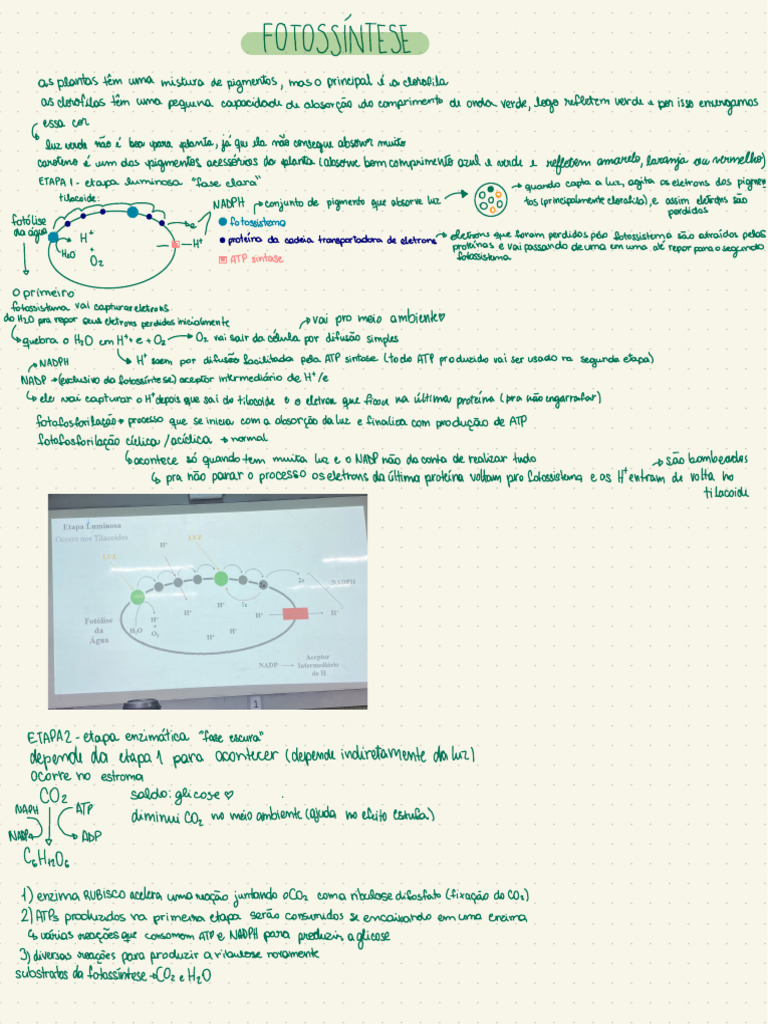 FOTOSSÍNTESE
as plantas têm uma mistura de pigmentos, mas o principal é a clorofila
as clorofilas têm uma pequena capacidade de absorção do comprimento de onda verde, logo refletem verde e por isso enxergamos
essa cor
luz verde não é boa para planta, já que ela não consegue absorver muito
caroteno é um dos pigmentos acessórios da planta (absorve bem comprimento azul e verde e refletem amarelo, laranja ou vermelho)
ETAPA 1 - etapa luminosa "fase clara"
tilacoide:
fotólise
da água
H2O
H+
+
O2
e-
H+
NADPH
conjunto de pigmento que absorve luz
fotossistema
proteína da cadeia transportadora de elétrons
ATP sintase
quando capta a luz, agita os eletrons dos pigmen
tos (principalmente clorofila), e assim eletrons são
perdidos
eletrons que foram perdidos pelo fotossistema são atraídos pelas
proteínas e vai passando de uma em uma até repor para o segundo
fotossistema.
O primeiro
fotossistema vai capturar eletrons
do H2O pra repor seus eletrons perdidos inicialmente
quebra o H2O em H+ + e + O2
O2 vai sair da célula por difusão simples
vai pro meio ambiente
H+ saem por difusão facilitada pela ATP sintase (todo ATP produzido vai ser usado na segunda etapa)
NADPH
NADP (exclusivo da fotossíntese) aceptor intermediário de H+/e
ele vai capturar o H+ depois que sai do tilacoide e o eletron que ficou na última proteína (pra não engarrafar)
fotofosforilação processo que se inicia com a absorção da luz e finaliza com produção de ATP
fotofosforilação cíclica / acíclica normal
acontece só quando tem muita luz e o NADP não da conta de realizar tudo
são bombeados
pra não parar o processo os eletrons da última proteína voltam pro fotossistema e os H+ entram de volta no
tilacoide
Etapa Luminosa
Ocorre nos Tilacoides
LUZ
LUZ
H+
H+
H+
H+
H+
H+
H+
H+
2e
2e
NADPH
Fotólise
da
Água
H2O
H+
+
O2
NADP
Aceptor
Intermediário
de H
1
ETAPA 2 - etapa enzimática "fase escura"
depende da etapa 1 para acontecer (depende indiretamente da luz)
ocorre no estroma
CO2
NAPH
ATP
NADP
ADP
C6H12O6
saldo: glicose
diminui CO2 no meio ambiente (ajuda no efeito estufa)
1) enzima RUBISCO acelera uma reação juntando o CO2 com a ribulose difosfato (fixação do CO2)
2) ATPs produzidos na primeira etapa serão consumidos se encaixando em uma enzima
várias reações que consomem ATP e NADPH para produzir a glicose
3) diversas reações para produzir a ribulose novamente
substratos da fotossíntese CO2 e H2O